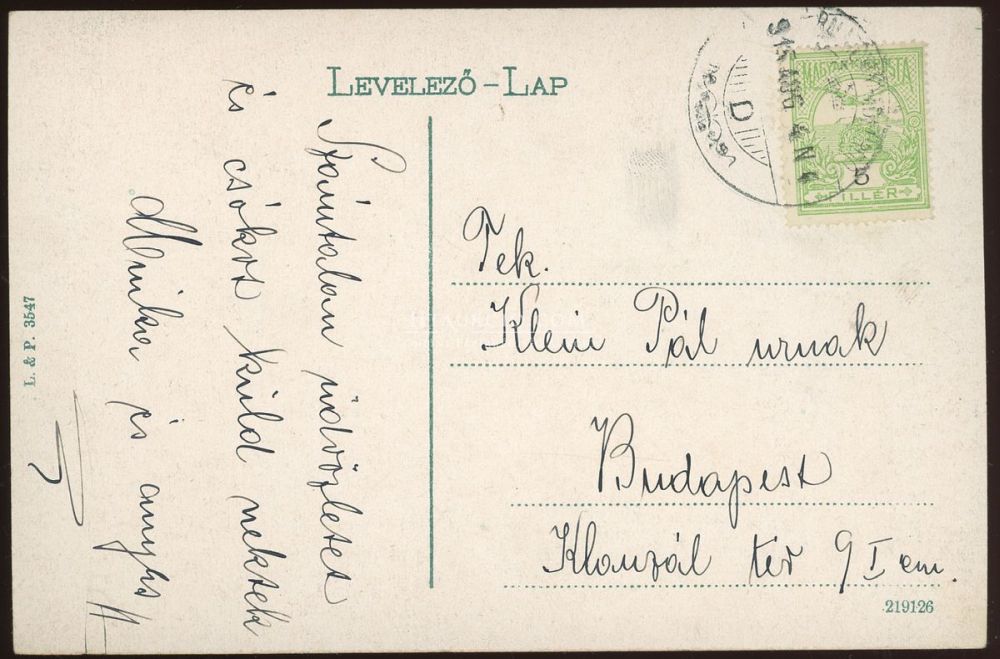 LEVELEZŐ-LAP
Számtalan üdvözletet
és csókot küld nektek
és anyus
Tek.
Klein Pál urnak
Budapest
Klauzál tér 9 I em.
MAGYAR KIR. POSTA
5
FILLÉR
915 AUG 4 N 4
D
L. & P. 3547
219126